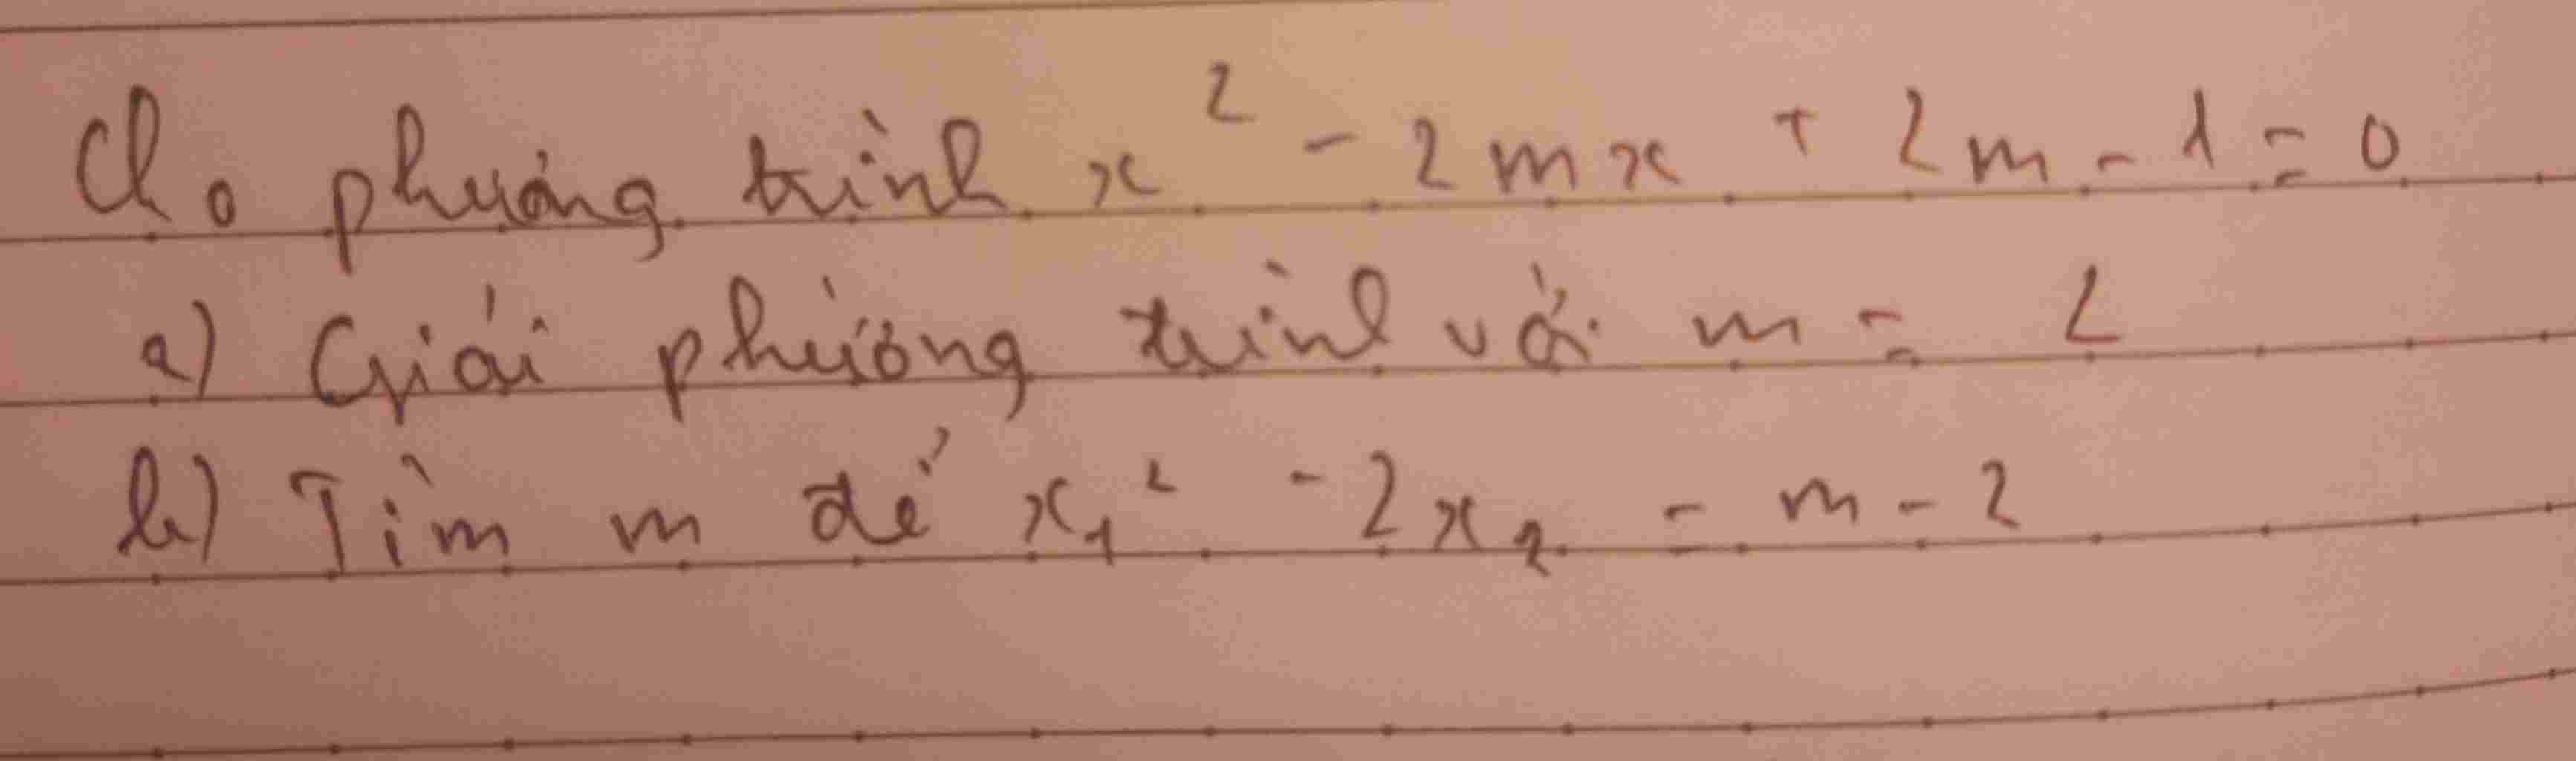 Cho phương trình x² - 2mx + 2m - 1 = 0
a) Giải phương trình với m = 2
b) Tìm m để x₁² - 2x₂ = m - 2